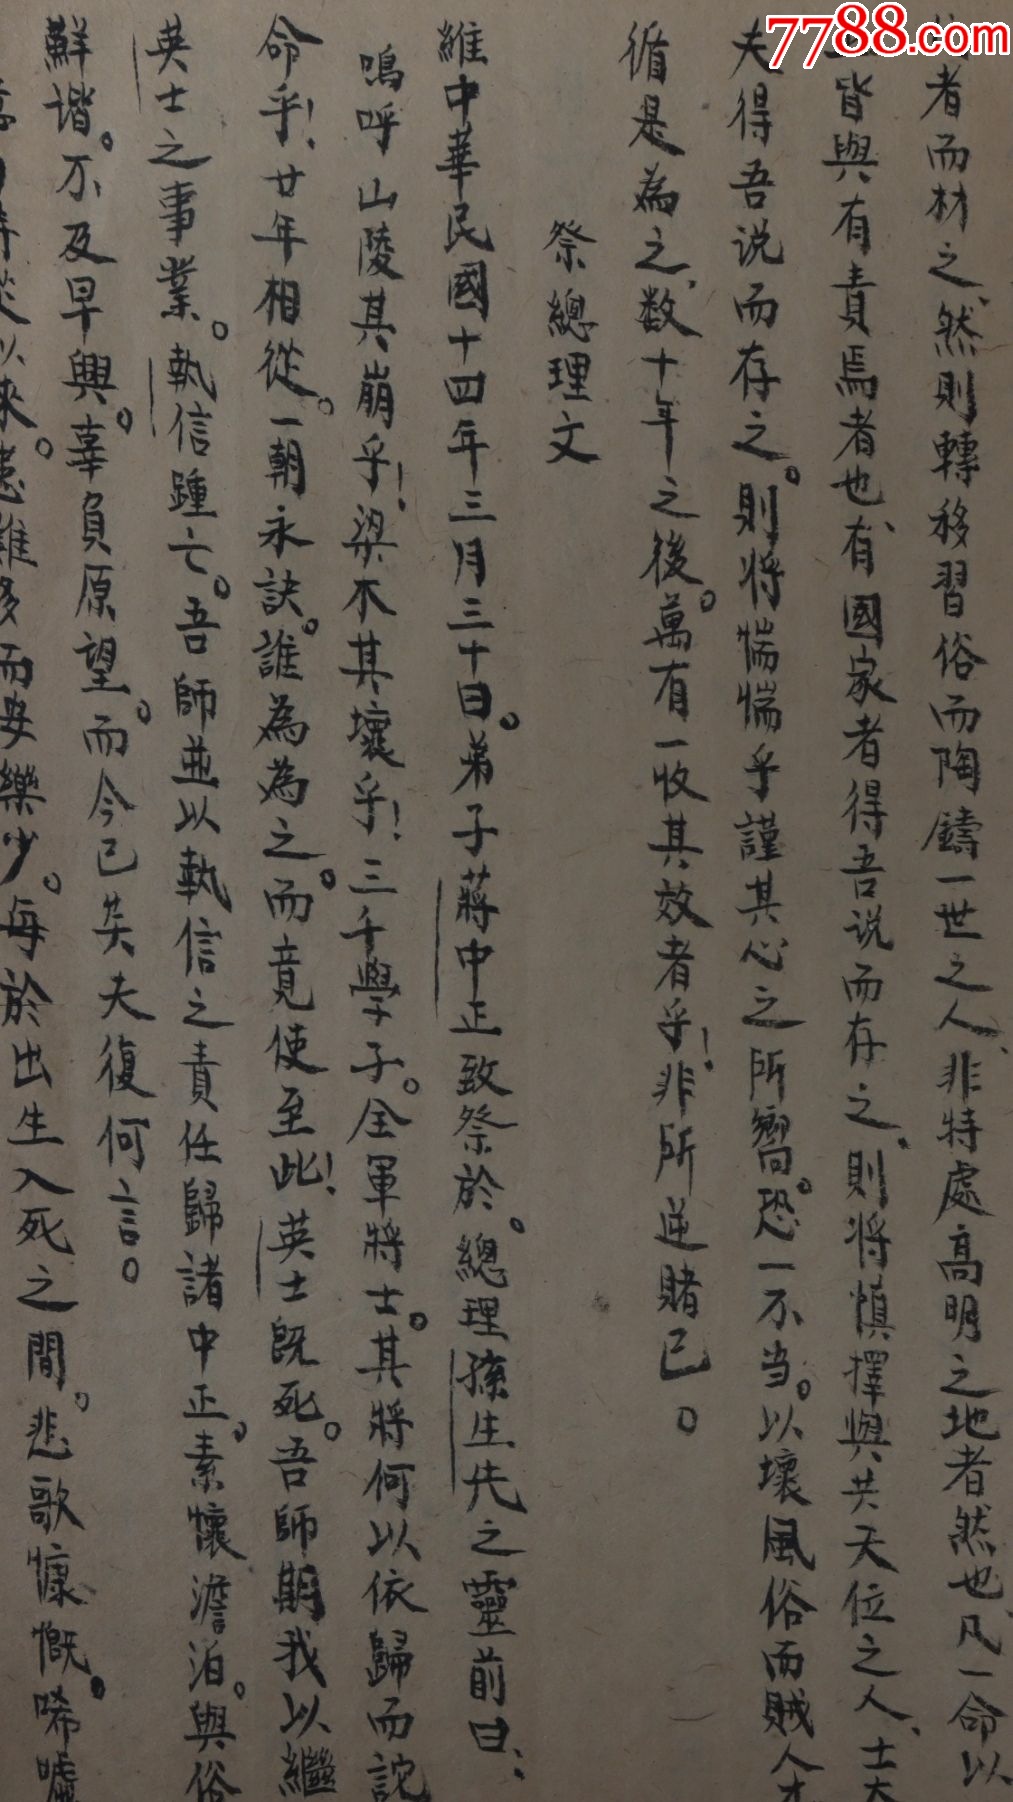 7788.com
者而材之、然則轉移習俗而陶鑄一世之人、非特處高明之地者然也、凡一命以
皆與有責焉者也、有國家者得吾说而存之、則将慎擇與共天位之人、士大
夫得吾说而存之。則将惴惴乎謹其心之所嚮。恐一不当。以壞風俗而賊人才
循是為之、数十年之後。萬有一收其效者乎！非所逆賭已。
祭總理文
維中華民國十四年三月三十日。弟子蔣中正致祭於。總理孫先生之靈前曰：
嗚呼山陵其崩乎！梁木其壞乎！三千學子。全軍將士。其將何以依歸而託
命乎！廿年相從。一朝永訣。誰為為之。而竟使至此！英士既死。吾師期我以繼
英士之事業。執信踵亡。吾師並以執信之責任歸諸中正。素懷澹泊。與俗
鮮谐。不及早興。辜負原望。而今已矣夫復何言。
以來。患難多而安樂少。每於出生入死之間。悲歌慷慨。唏噓